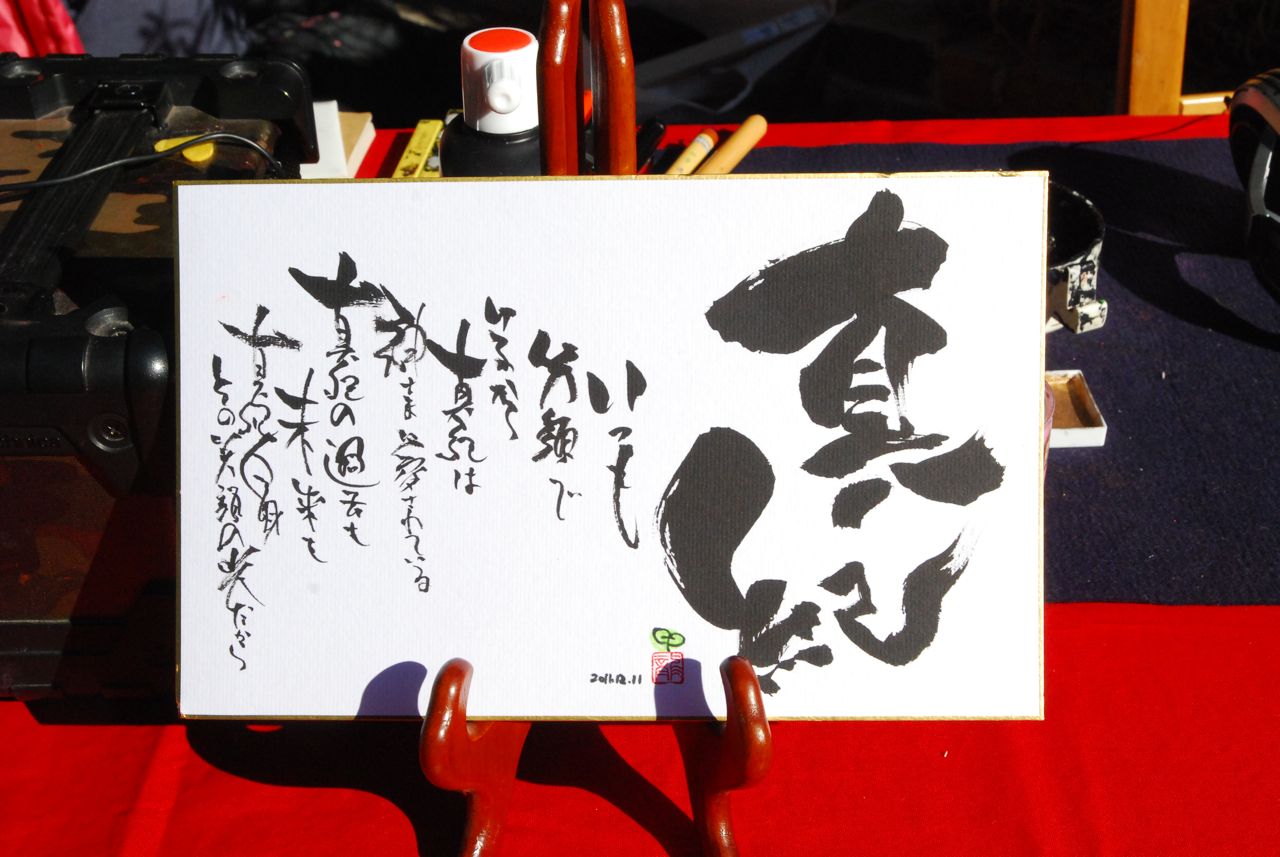 真紀
いつも
笑顔で
いるから
真紀は
神さまに愛されている
真紀の過去も
未来も
真紀自身
その笑顔の光だから
2011.12.11